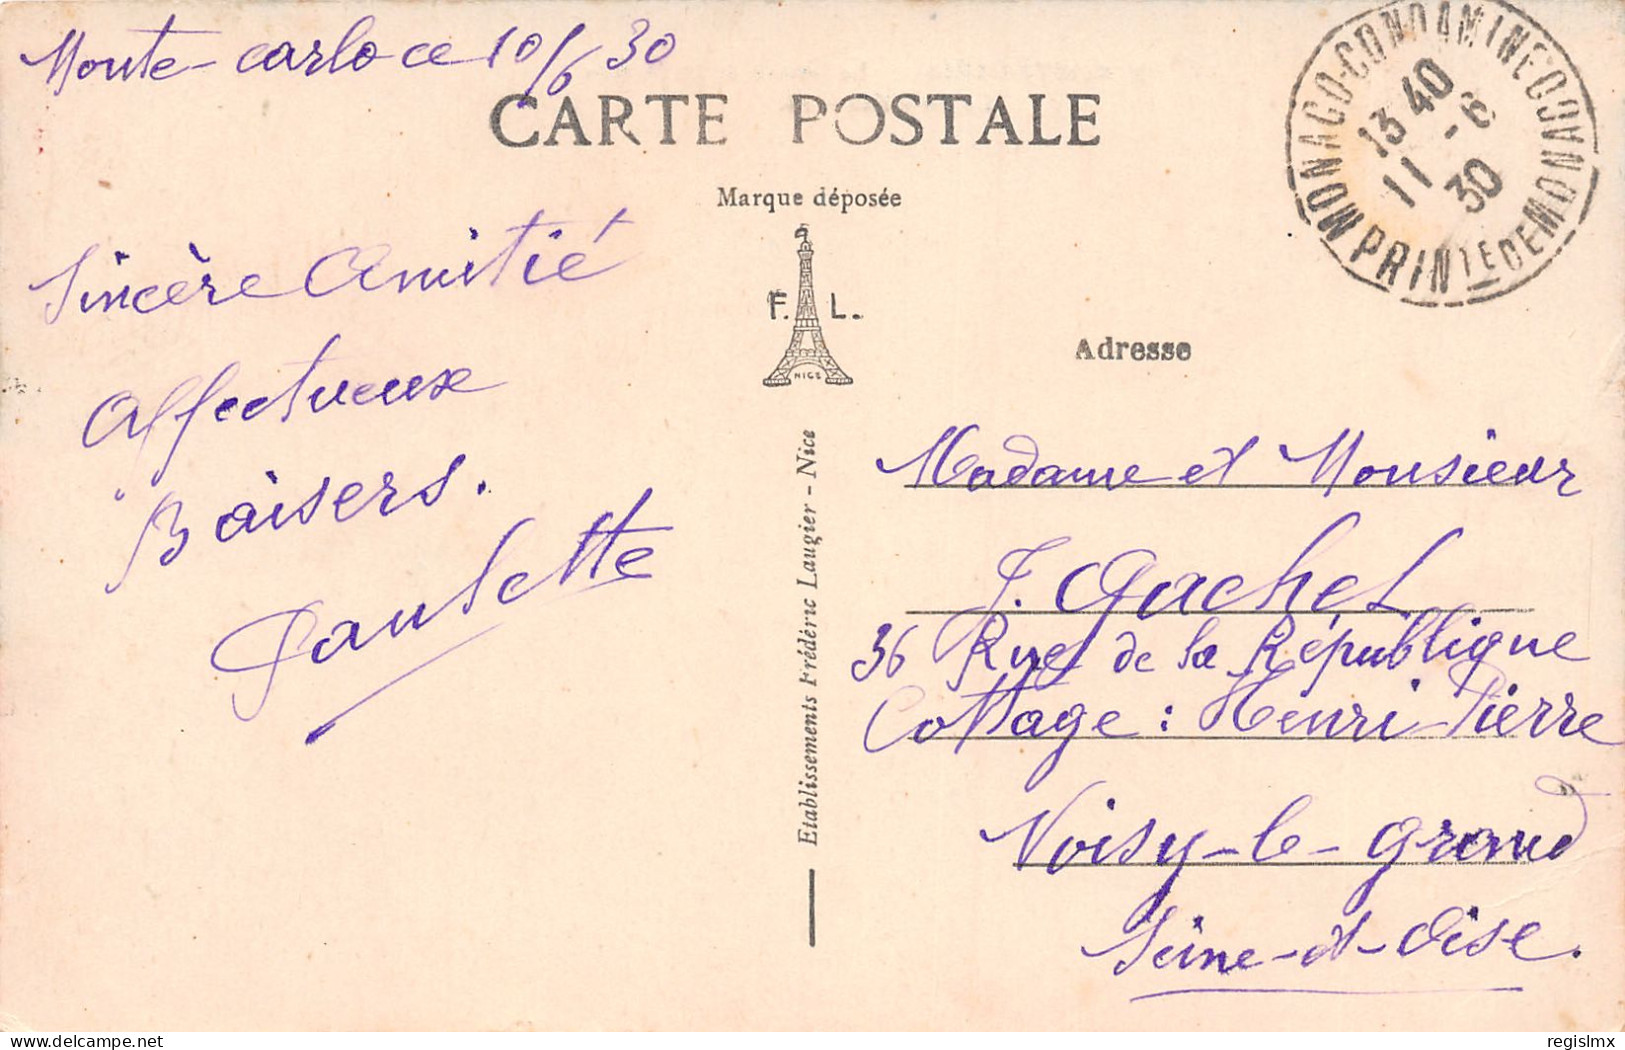 Monte-carlo ce 10/6 30
CARTE POSTALE
MONACO-CONDAMINE
13 40
11 -6
30
PRINTÉ DE MONACO
Marque déposée
F. L.
NICE
Sincère Amitié
Affectueux
Baisers.
Paulette
Etablissements Frédéric Laugier - Nice
Adresse
Madame et Monsieur
J. Gachet
36 Rue de la République
Cottage : Henri-Pierre
Noisy-le-grand
Seine-et-Oise.
delcampe.net
regislmx